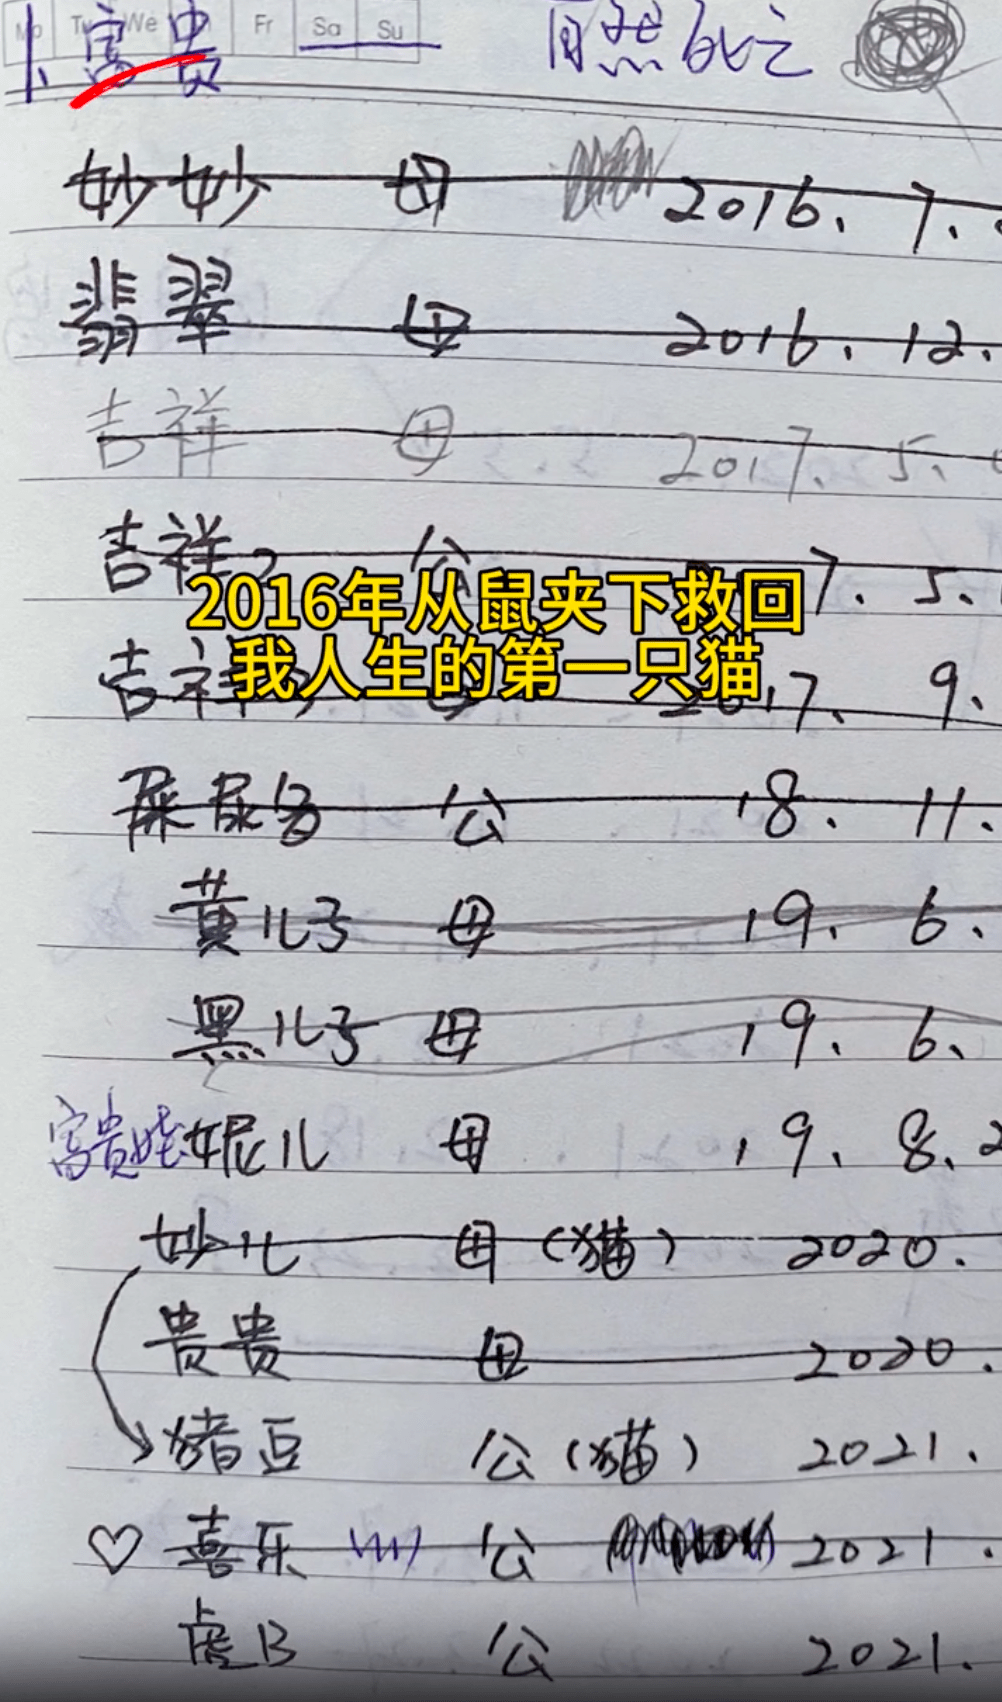 Mo Tu We Fr Sa Su
卜富贵 自然死亡
妙妙 母 2016. 7.
翡翠 母 2016. 12.
吉祥 母 2017. 5.
吉祥2 公 7. 5.
2016年从鼠夹下救回
我人生的第一只猫
吉祥3 母 2017. 9.
屎尿多 公 18. 11.
黄儿子 母 19. 6.
黑儿子 母 19. 6.
富贵娃 妮儿 母 19. 8. 2
妙儿 母(猫) 2020.
贵贵 母 2020.
猪豆 公(猫) 2021.
♡ 喜乐 公 2021.
虎B 公 2021.